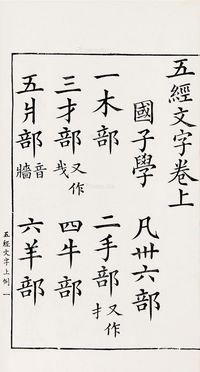 五經文字卷上
國子學 凡卅六部
一木部 二手部 又作扌
三才部 又作 四牛部
五爿部 音牆 六羊部
五經文字上例 一